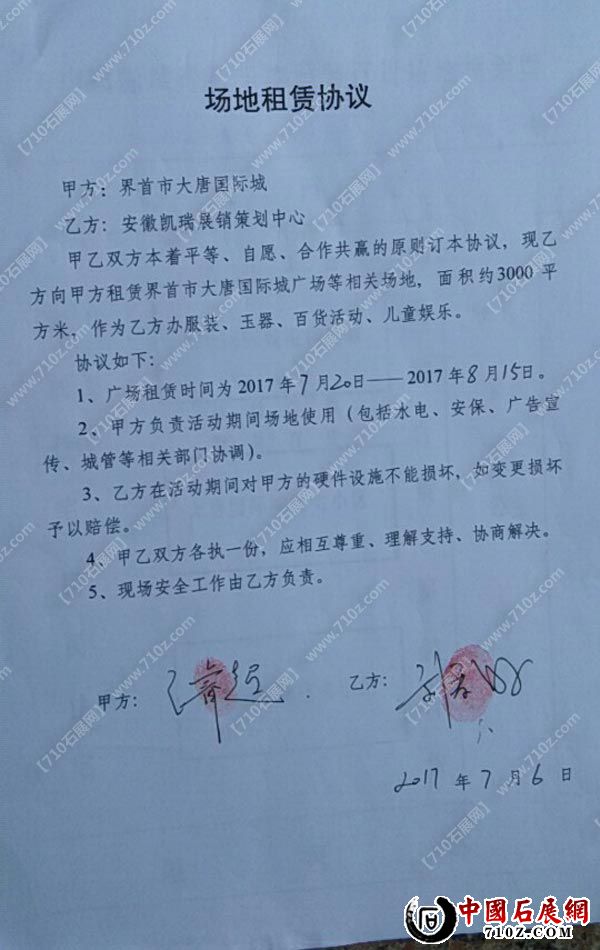 场地租赁协议
甲方：界首市大唐国际城
乙方：安徽凯瑞展销策划中心
甲乙双方本着平等、自愿、合作共赢的原则订本协议，现乙
方向甲方租赁界首市大唐国际城广场等相关场地，面积约3000 平
方米，作为乙方办服装、玉器、百货活动、儿童娱乐。
协议如下：
1、广场租赁时间为 2017 年 7 月 20 日—— 2017 年 8 月 15 日。
2、甲方负责活动期间场地使用（包括水电、安保、广告宣
传、城管等相关部门协调）。
3、乙方在活动期间对甲方的硬件设施不能损坏，如变更损坏
予以赔偿。
4、甲乙双方各执一份，应相互尊重、理解支持、协商解决。
5、现场安全工作由乙方负责。
甲方：
乙方：
2017 年 7 月 6 日
【710石展网】 www.710z.com
中國石展網
710Z.COM